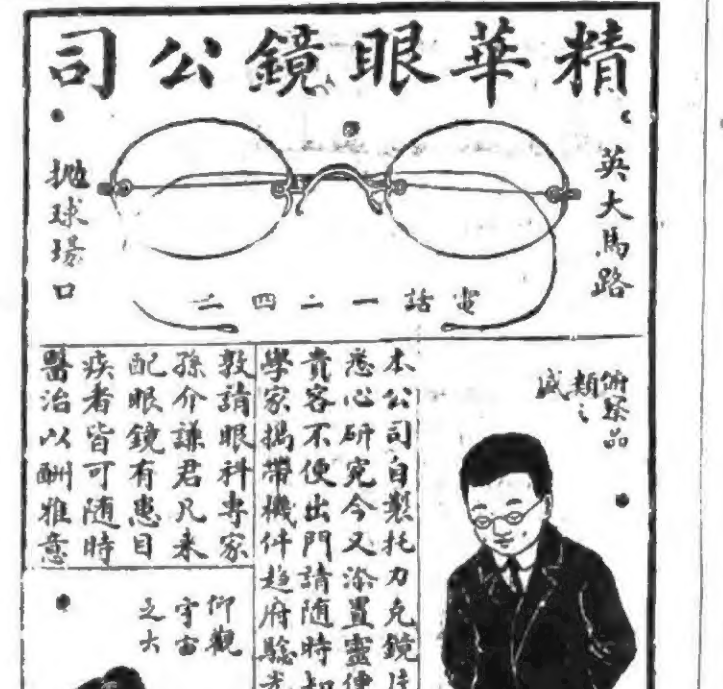 精華眼鏡公司
英大馬路
拋球場口
電話一二四二
俯察品
類之
盛
本公司自製托力克鏡片
悉心研究今又添置靈便
貴客不便出門請随時知
學家携帶機件趋府驗光
敦請眼科専家
孫介謙君凡来
配眼鏡有患目
疾者皆可随時
醫治以酬雅意
仰觀
宇宙
之大